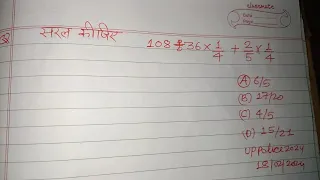 classmate
Date
Page
सरल कीजिए
108 ÷ 36 × 1/4 + 2/5 × 1/4
(A) 6/5
(B) 17/20
(C) 4/5
(D) 15/21
UP Police 2024